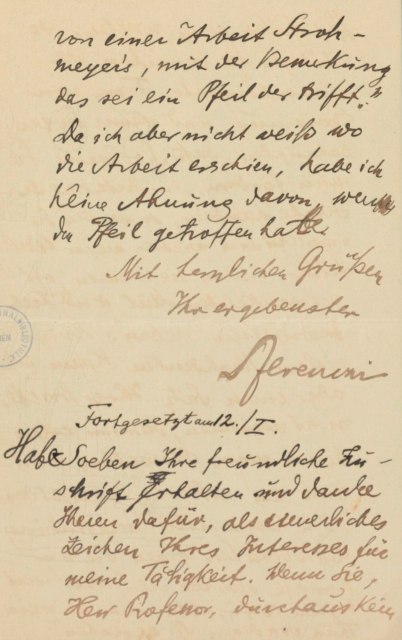 von einer Arbeit Stroh-
meyer's, mit der Bemerkung
das sei ein Pfeil der trifft".
Da ich aber nicht weiß wo
die Arbeit erschien, habe ich
keine Ahnung davon, wen
der Pfeil getroffen hatte.
Mit herzlichen Grüßen
Ihr ergebenster
SFerenczi
Fortgesetzt am 12./I.
Habe Soeben Ihre freundliche Zu-
schrift Erhalten und danke
Ihnen dafür, als neuerliches
Zeichen Ihres Interesses für
meine Tätigkeit. Wenn Sie,
Herr Professor, durchaus kein